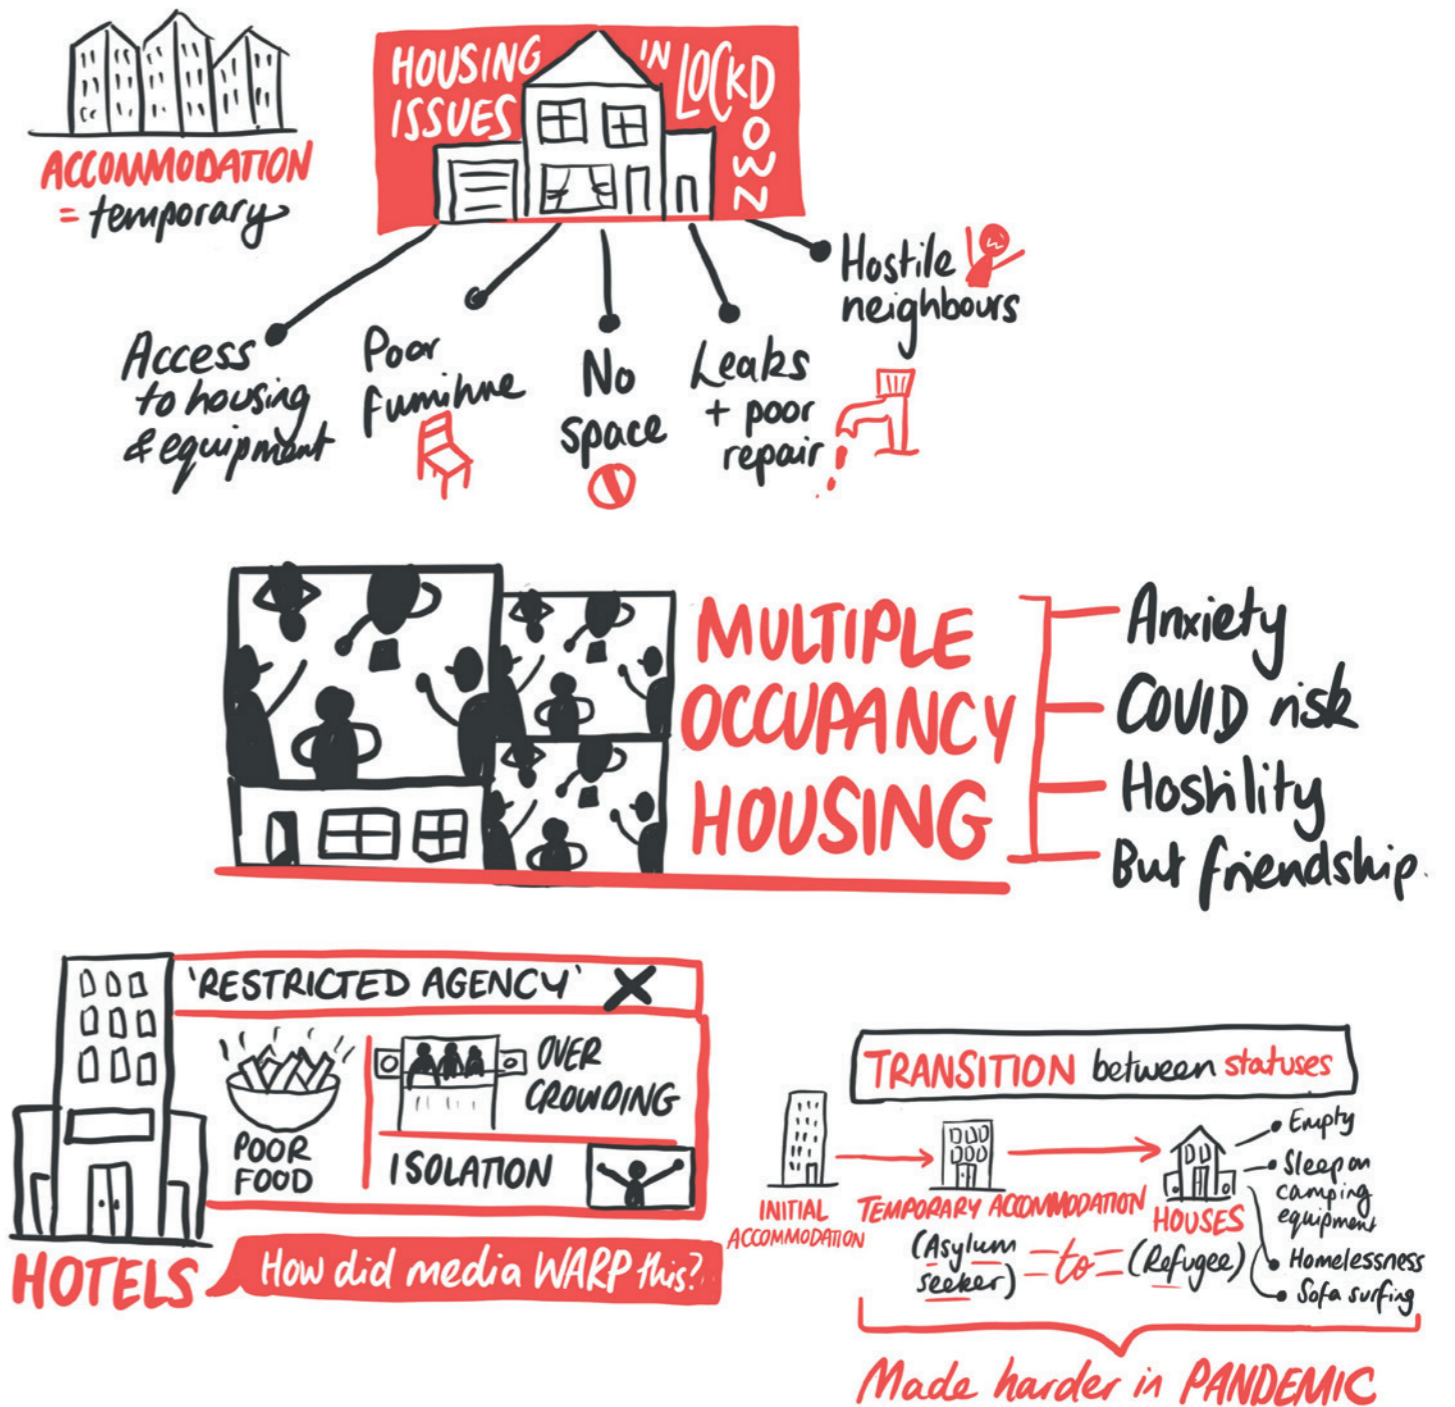 ACCOMMODATION
= temporary
HOUSING
ISSUES
IN LOCKDOWN
Access
to housing
& equipment
Poor
furniture
No
space
Leaks
+ poor
repair
Hostile
neighbours
MULTIPLE
OCCUPANCY
HOUSING
Anxiety
COVID risk
Hostility
But friendship.
'RESTRICTED AGENCY'
POOR
FOOD
OVER
CROWDING
ISOLATION
HOTELS
How did media WARP this?
TRANSITION between statuses
INITIAL
ACCOMMODATION
TEMPORARY ACCOMMODATION
(Asylum
seeker)
= to =
HOUSES
(Refugee)
Empty
Sleep on
camping
equipment
Homelessness
Sofa surfing
Made harder in PANDEMIC